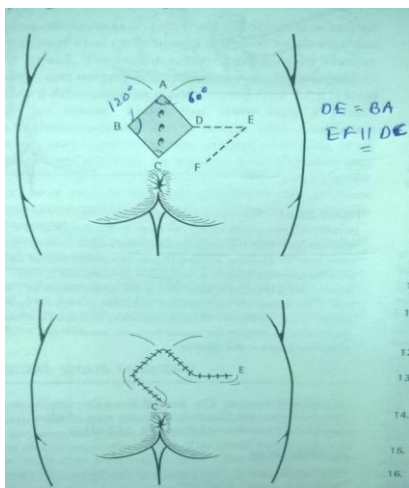 A
120° 60°
B D E
C F
DE = BA
EF || DC
E
C
12
13
14.
15.
16.